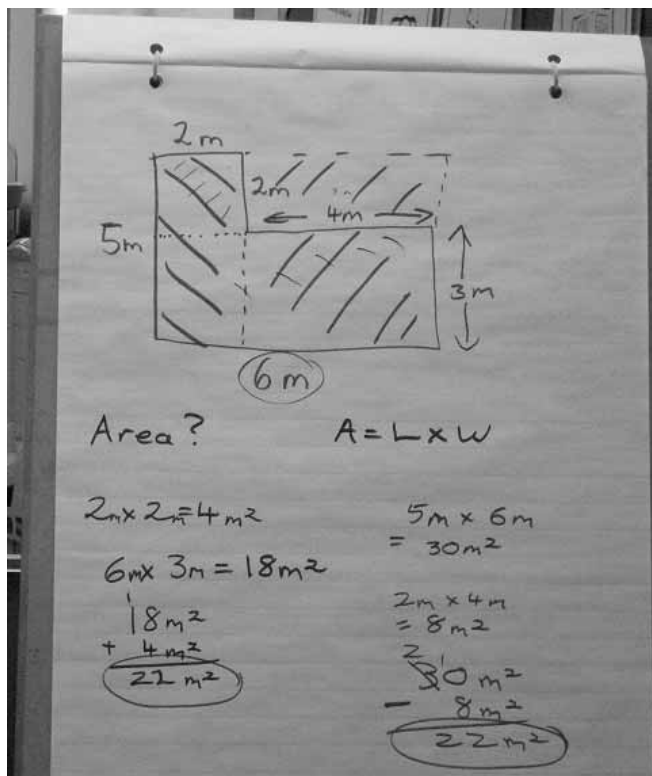 2m
2m
4m
5m
3m
6m
Area?
A = L x W
2m x 2m = 4m²
6m x 3m = 18m²
18m²
+ 4m²
22 m²
5m x 6m
= 30m²
2m x 4m
= 8m²
2 1
30 m²
- 8m²
22m²